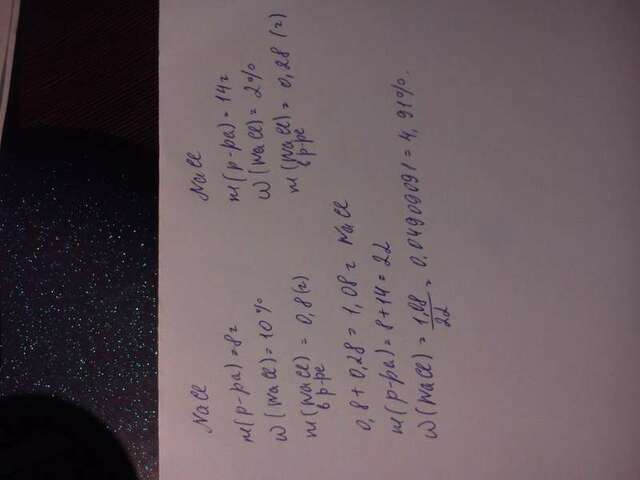 NaCl
m(р-ра)=8г
ω(NaCl)=10%
m(NaCl)=0,8(г)
в р-ре
NaCl
m(р-ра)=14г
ω(NaCl)=2%
m(NaCl)=0,28(г)
в р-ре
0,8+0,28=1,08г NaCl
m(р-ра)=8+14=22
ω(NaCl)=1,08/22=0.04909091=4,91%.